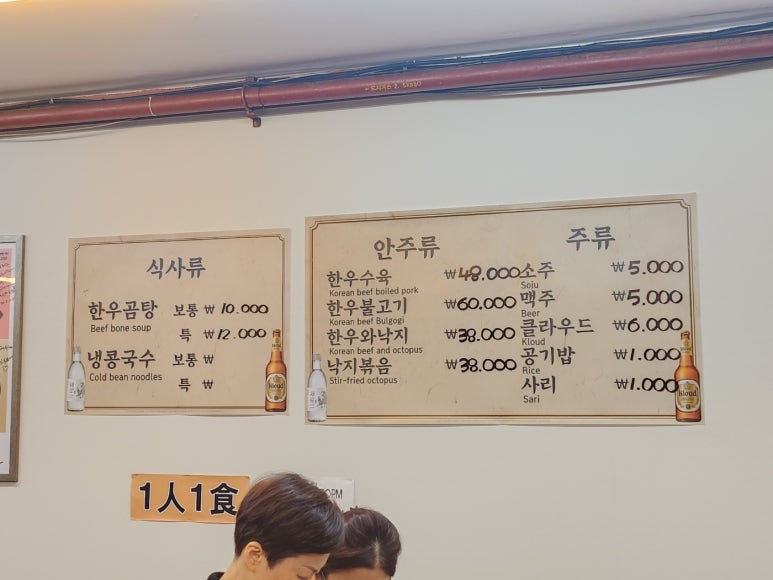 식사류
한우곰탕 보통 ₩ 10.000
Beef bone soup
특 ₩ 12.000
냉콩국수 보통 ₩
Cold bean noodles
특 ₩
안주류
한우수육 ₩48.000
Korean beef boiled pork
한우불고기 ₩60.000
Korean beef Bulgogi
한우와낙지 ₩38.000
Korean beef and octopus
낙지볶음 ₩38.000
Stir-fried octopus
주류
소주 ₩5.000
Soju
맥주 ₩5.000
Beer
클라우드 ₩6.000
Kloud
공기밥 ₩1.000
Rice
사리 ₩1.000
Sari
Kloud
Kloud
1人1食
PM